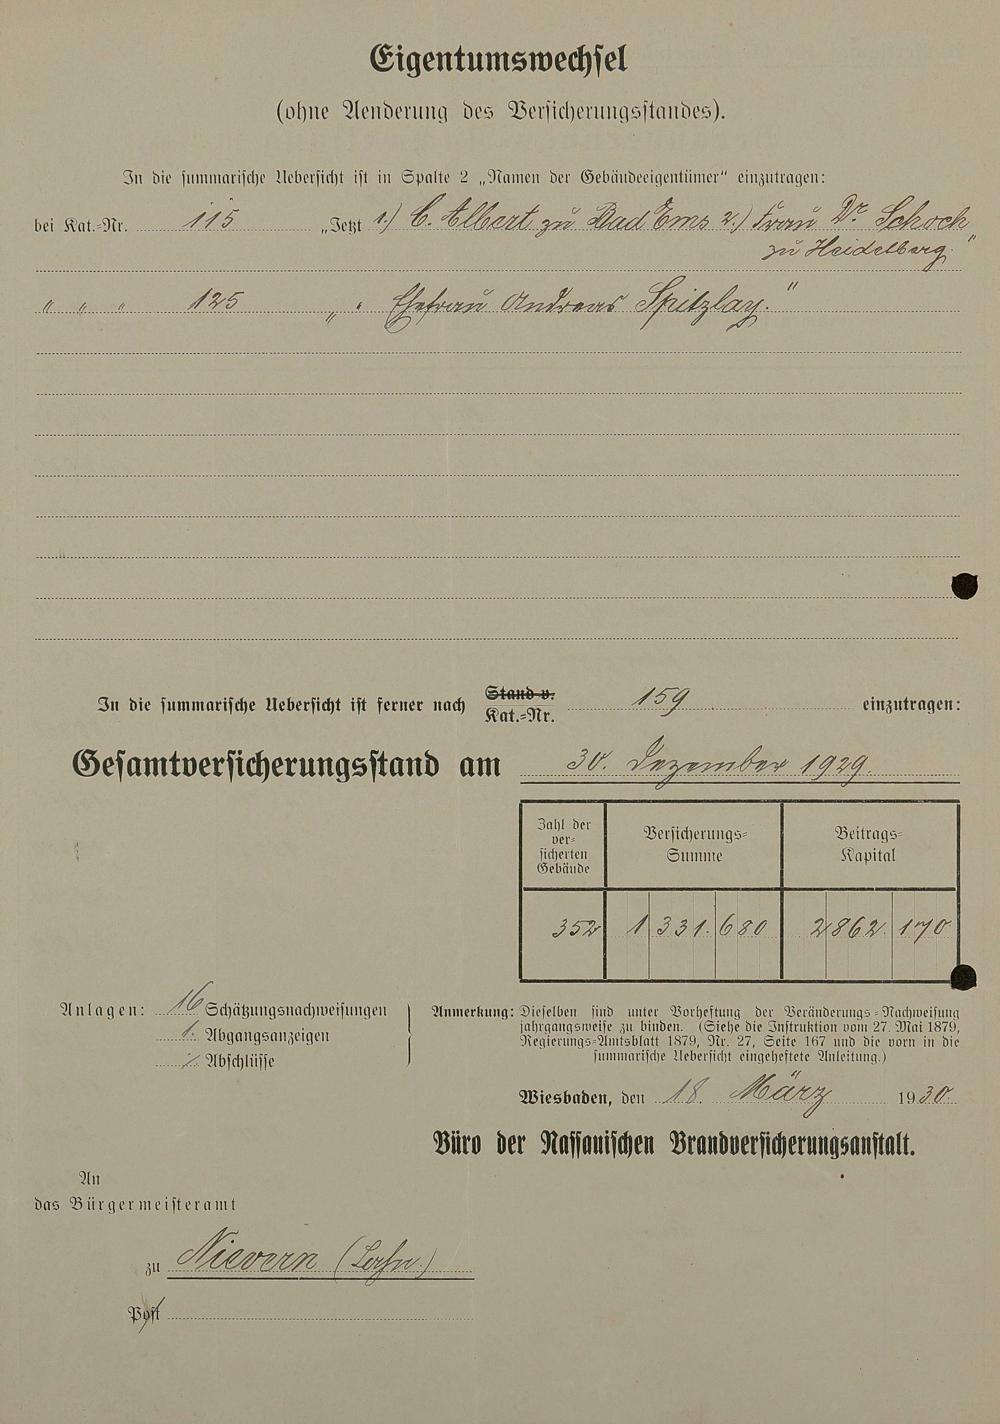 Eigentumswechsel
(ohne Aenderung des Versicherungsstandes).
In die summarische Uebersicht ist in Spalte 2 „Namen der Gebäudeeigentümer“ einzutragen:
bei Kat.-Nr. 115 „Jetzt 1.) C. Albert zu Bad Ems 2.) Frau Dr Schoch
zu Heidelberg.“
" " " 125 „ " Ehefrau Andreas Spitzlay.“
In die summarische Uebersicht ist ferner nach Stand v. Kat.-Nr. 159 einzutragen:
Gesamtversicherungsstand am 30. Dezember 1929.
Zahl der versicherten Gebäude
Versicherungs-Summe
Beitrags-Kapital
352 1 331. 680 2862. 170
Anlagen: 16 Schätzungsnachweisungen
1. Abgangsanzeigen
Abschlüsse
Anmerkung: Dieselben sind unter Vorheftung der Veränderungs-Nachweisung
jahrgangsweise zu binden. (Siehe die Instruktion vom 27. Mai 1879,
Regierungs-Amtsblatt 1879, Nr. 27, Seite 167 und die vorn in die
summarische Uebersicht eingeheftete Anleitung.)
Wiesbaden, den 18. März 1930.
Büro der Nassauischen Brandversicherungsanstalt.
An
das Bürgermeisteramt
zu Nievern (Lahn)
Post